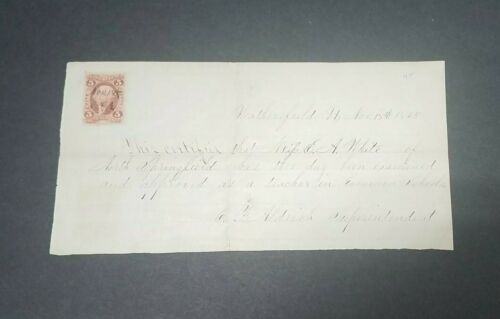 5 5
Weathersfield Vt Nov 18th 1865
This certifies that Miss E. A. White of
North Springfield has this day been examined
and approved as a teacher in common schools
Aldrich Superintendent